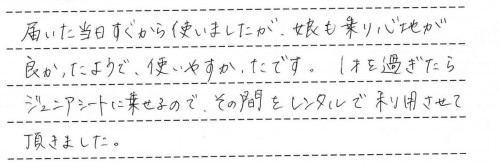 届いた当日すぐから使いましたが、娘も乗り心地が
良かったようで、使いやすかったです。 1才を過ぎたら
ジュニアシートに乗せるので、その間をレンタルで利用させて
頂きました。